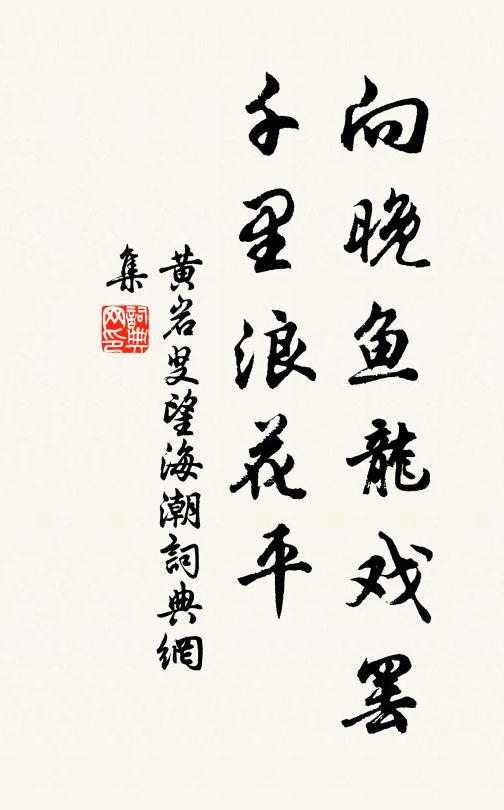 向晚鱼龍戏罢
千里浪花平
黄岩叟望海潮詞典網
集
詞典网印